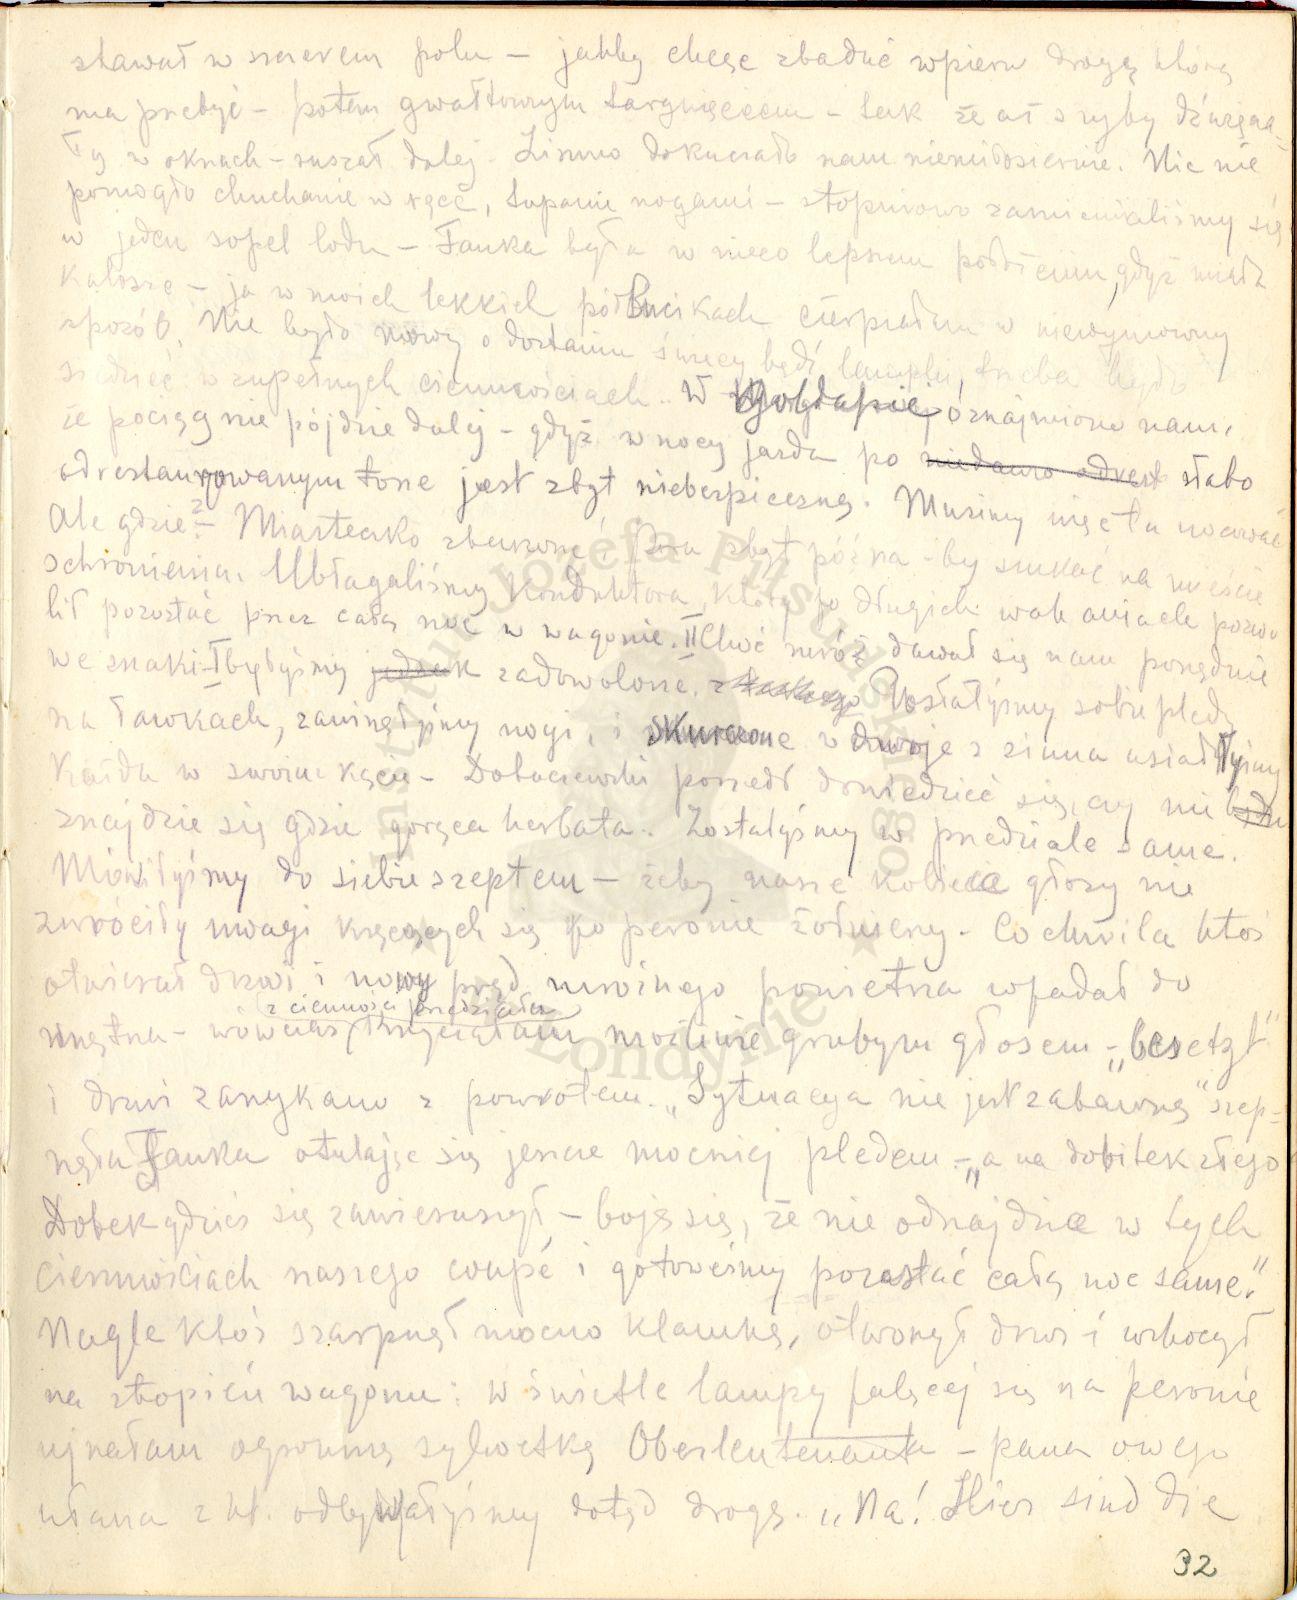 stawał w szczerem polu – jakby chcąc zbadać wpierw drogę którą
ma przebyć – potem gwałtownym targnięciem – tak że aż szyby dźwięcza-
ły w oknach – ruszał dalej. Zimno dokuczało nam niemiłosiernie. Nic nie
pomogło chuchanie w ręce, tupanie nogami – stopniowo zamieniałiśmy się
w jeden sopel lodu – Janka była w nieco lepszem położeniu, gdyż miała
kalosze – ja w moich lekkich półbucikach cierpiałam w niewymowny
sposób. Nie było mowy o dostaniu świecy bądź lampki, trzeba było
siedzieć w zupełnych ciemnościach. W Gołdapie oznajmiono nam,
że pociąg nie pójdzie dalej – gdyż w nocy jazda po niedawno odrest słabo
odrestaurowanym torze jest zbyt niebezpieczną. Musimy więc tu nocować
Ale gdzie? – Miasteczko zburzone, Pora zbyt późna – by szukać na mieście
schronienia. Ubłagaliśmy konduktora, który po długich wahaniach pozwo
lił pozostać przez całą noc w wagonie. II Choć mróz dawał się nam porządnie
we znaki – I byłyśmy jednak zadowolone. Posłałyśmy sobie pledy
na ławkach, zawinęłyśmy nogi, i skurczone we dwoje z zimna usiadłyśmy
każda w swoim kącie – Dobaczewski poszedł dowiedzieć się, czy nie będz
znajdzie się gdzie gorąca herbata. Zostałyśmy w przedziale same.
Mówiłyśmy do siebie szeptem – żeby nasze kobiece głosy nie
zwróciły uwagi kręcących się po peronie żołnierzy. Co chwila ktoś
otwierał drzwi i nowy prąd mroźnego powietrza wpadał do
(z ciemności przedziału)
wnętrza – wówczas krzyczałam możliwie grubym głosem – „besetzt”
i drzwi zamykano z powrotem. „Sytuacya nie jest zabawną” szep-
nęła Janka otulając się jeszcze mocniej pledem – „a na dobitek złego
Dobek gdzieś się zawieruszył – boję się, że nie odnajdzie w tych
ciemnościach naszego coupé i gotowiśmy pozostać całą noc same.”
Nagle ktoś szarpnął mocno klamką, otworzył drzwi i wskoczył
na stopień wagonu: w świetle lampy palącej się na peronie
ujrzałam ogromną sylwetkę Oberleutenanta – pana owego
ułana z kt. odbywałyśmy dotąd drogę. „Na! Hier sind die
32
Instytut Józefa Piłsudskiego
★ w Londynie ★